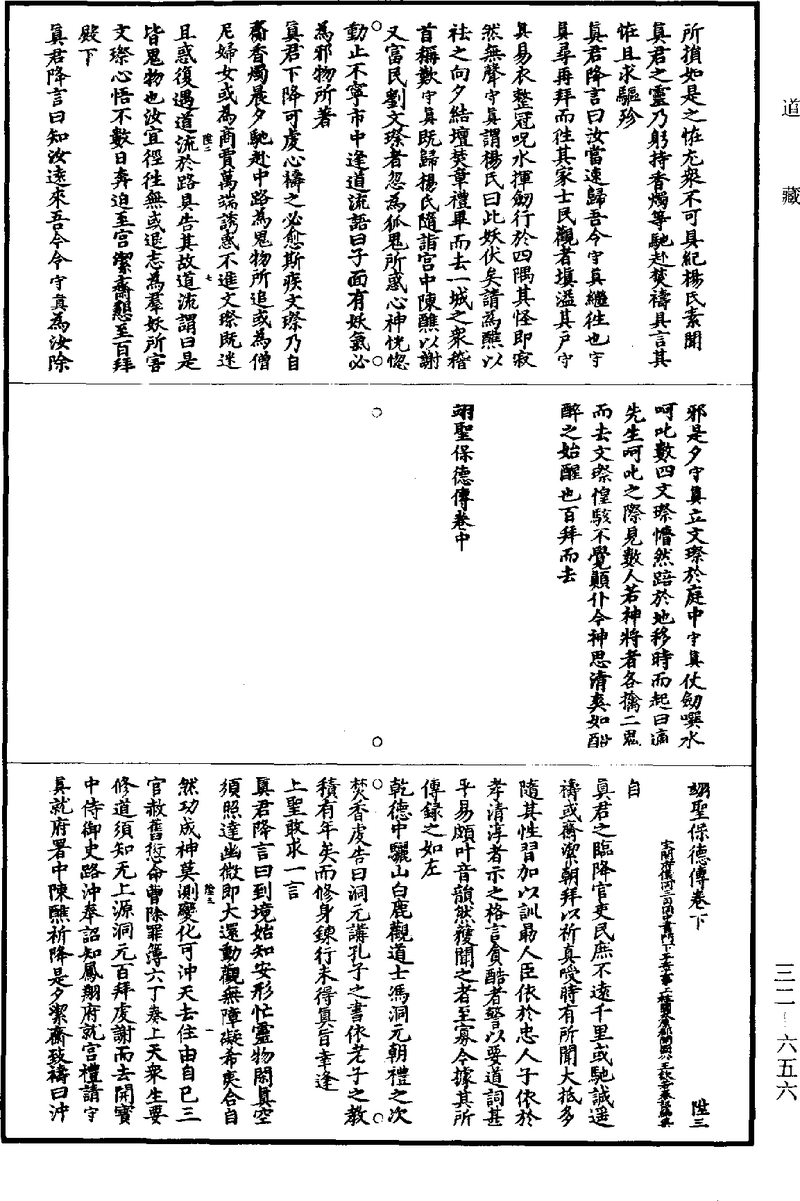 道藏
所損如是之恠尤衆不可具紀楊氏素聞
真君之靈乃躬持香燭等馳赴焚禱具言其
恠且求驅珍
真君降言曰汝當速歸吾令守真繼徃也守
真尋再拜而徃其家士民觀者填溢其戶守
真易衣整冠呪水揮劒行於四隅其怪即寂
然無聲守真謂楊氏曰此妖伏矣請為醮以
祛之向夕結壇焚章禮畢而去一城之衆稽
首稱歎守真既歸楊氏隨詣宮中陳醮以謝
又富民劉文璨者忽為狐鬼所惑心神恍惚
動止不寧市中逢道流語曰子面有妖氣必
為邪物所著
真君下降可虔心禱之必愈斯疾文璨乃自
齎香燭晨夕馳赴中路為鬼物所追或為僧
尼婦女或為商賈萬端誘惑不進文璨既迷
且惑復遇道流於路具告其故道流謂曰是
皆鬼物也汝宜徑徃無或退志為羣妖所害
文璨心悟不數日奔迫至宮潔齋懇至百拜
殿下
真君降言曰知汝遠來吾今令守真為汝除
邪是夕守真立文璨於庭中守真仗劒噀水
呵叱數四文璨懵然踣於地移時而起曰適
先生呵叱之際見數人若神將者各擒二鬼
而去文璨惶駭不覺顛仆今神思清爽如酣
醉之始醒也百拜而去
翊聖保德傳卷中
翊聖保德傳卷下
陞三
自
真君之臨降官吏民庶不遠千里或馳誠遥
禱或齋潔朝拜以祈真受時有所聞大抵多
隨其性習加以訓勗人臣依於忠人子依於
孝清淳者示之格言貪酷者警以要道詞甚
平易頗叶音韻然獲聞之者至寡今據其所
傳錄之如左
乾德中驪山白鹿觀道士馮洞元朝禮之次
焚香虔告曰洞元講孔子之書依老子之教
積有年矣而修身鍊行未得真旨幸逢
上聖敢求一言
真君降言曰到境始知安形忙靈物閑真空
須照達幽微即大還動觀無障礙希夷合自
然功成神莫測變化可沖天去住由自已三
官赦舊愆命曹除罪簿六丁奏上天衆生要
修道須知无上源洞元百拜虔謝而去開寶
中侍御史路沖奉詔知鳳翔府就宮禮請守
真就府署中陳醮祈降是夕潔齋致禱曰沖
三二-六五六